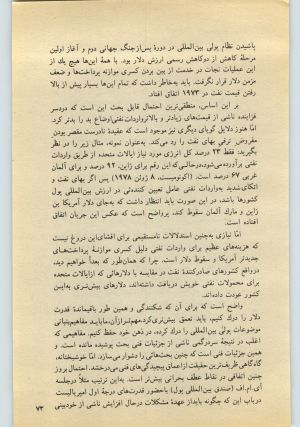 پاشیدن نظام پولی بین‌المللی در دورهٔ پس‌از‌جنگ جهانی دوم و آغاز اولین
مرحلهٔ کاهش از دوکاهش رسمی ارزش دلار بود. با همهٔ این‌ها هیچ یك از
این عملیات نجات در خدمت از بین بردن کسری موازنه پرداخت‌ها و ضعف
مزمن دلار قرار نگرفت. باید به‌خاطر داشت که تمام این‌ها بسیار پیش از بالا
رفتن قیمت نفت در ۱۹۷۳ اتفاق افتاد.
بر این اساس، منطقی‌ترین احتمال قابل بحث این است که دردسر
فزاینده ناشی از قیمت‌های زیادتر و بالاتر‌واردات‌نفتی‌اوضاع بد را بدتر کرد.
امّا هنوز دلایل گویای دیگری نیز موجود است که عقیدهٔ نادرست مقصر بودن
مفروض ترقی بهای نفت را رد می‌کند. به‌عنوان نمونه، مثال زیر را در نظر
بگیرید. فقط ۲۳ درصد کل انرژی مورد نیاز ایالات متحده از طریق واردات
نفتی برآورده‌می‌شود، درحالی‌که این رقم برای ژاپن، ۹۲ درصد و برای آلمان
غربی ۶۷ درصد است. (اکونومیست، ۸ ژوئن ۱۹۷۸) پس اگر بهای نفت و
اتکای‌شدید به‌واردات نفتی عامل تعیین کننده‌ئی در ارزش بین‌المللی پول
کشورها باشد، در این صورت باید انتظار داشت که به‌جای دلار آمریکا ین
ژاپن و مارك آلمان سقوط کند، پرواضح است که عکس این جریان اتفاق
افتاده است.
امّا نیازی به‌چنین استدلالات نامستقیمی برای افشای‌این دروغ نیست
که هزینه‌های عظیم برای واردات نفتی دلیل کسری موازنهٔ پرداخت‌های
جدیدتر آمریکا و سقوط دلار است. چرا که همان‌طور که بعداً خواهیم دید،
درواقع کشورهای صادرکنندهٔ نفت در مقایسه با دلارهائی که ازایالات متحده
برای محمولات نفتی خویش دریافت داشته‌اند، دلارهای بیش‌تری به‌این
کشور عودت داده‌اند.
واضح است که برای آن که شکنندگی و همین طور باقیماندهٔ قدرت
دلار را درك کنیم، باید تعمق بیش‌تری‌کرد. مهم‌تر‌از‌آن، ما‌باید مفاهیم‌بنیانی
موضوعات پولی بین‌المللی را درك کرده، در ذهن خود حفظ کنیم. مفاهیمی که
اغلب در نتیجهٔ سردرگمی ناشی از جزئیات فنی بحث پوشیده مانده است. و
همین جزئیات فنی است که چنین بحث‌هائی را دشوار می‌سازد. امّا خوشبختانه،
گاه‌گاهی ظریف‌ترین حقیقت از اعماق پیچیدگی‌های فنی می‌درخشد. احتمال بروز
چنین اتفاقی در نقاط عطف بحرانی بیش‌تر است. به‌این ترتیب مثلاً درجلسه
آی.ام.اف (صندوق بین‌المللی پول) باحضور قدرت‌های درجهٔ اول امپریالیست
درباب این که چگونه باید‌از عهدهٔ مشکلات درحال افزایش ناشی از خودبینی
۷۳